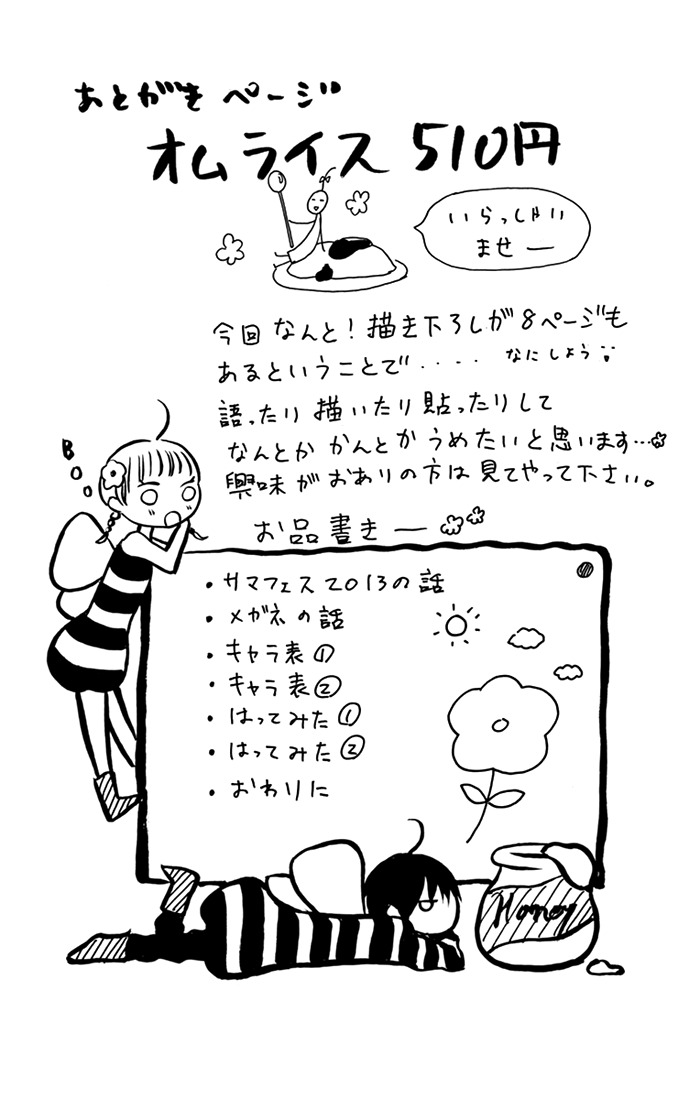 あとがきページ
オムライス 510円
いらっしゃい
ませー
今回なんと!描き下ろしが8ページも
あるということで・・・・ なにしよう
語ったり描いたり貼ったりして
なんとかかんとかうめたいと思います…
興味がおありの方は見てやって下さい。
お品書きー
・サマフェス2013の話
・メガネの話
・キャラ表①
・キャラ表②
・はってみた①
・はってみた②
・おわりに
Boo
Honey